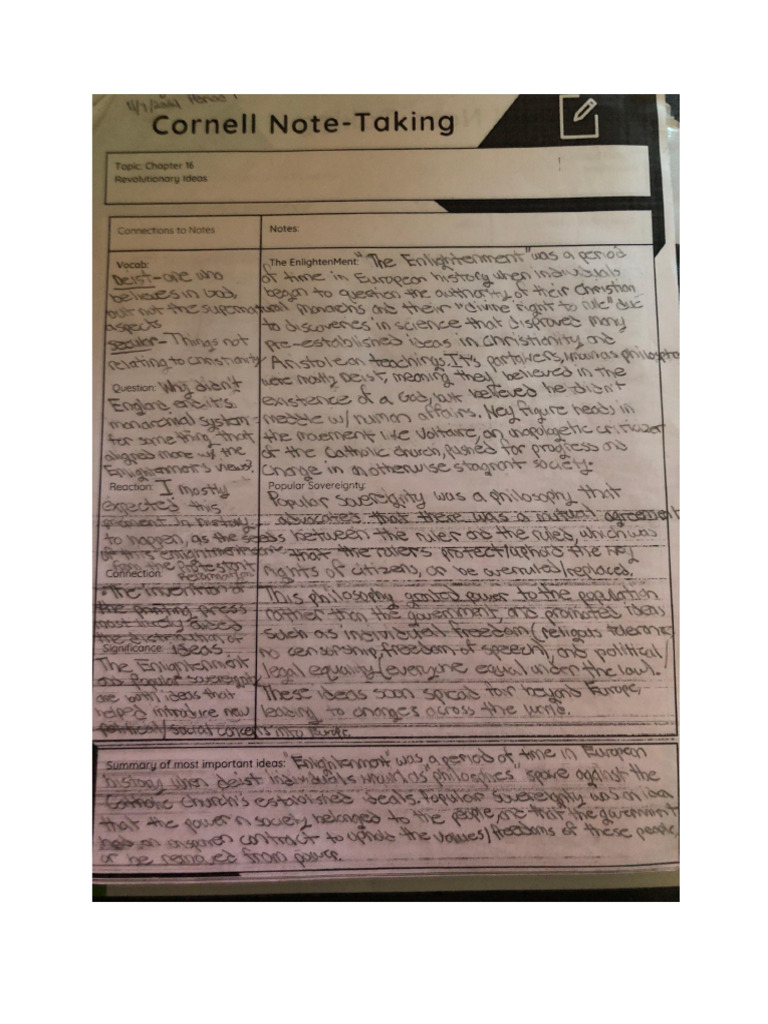 Cornell Note-Taking
Topic: Chapter 16
Revolutionary Ideas
Connections to Notes
Notes:
Vocab:
Deist- one who
believes in God,
but not the supernatural
aspects
secular- Things not
relating to christianity
Question: Why didn't
England end it's
monarchial system
for something that
aligned more w/ the
Enlightenment's views?
Reaction: I mostly
expected this
moment in history
to happen, as the seeds
of this enlightenment
from the Protestant
Reformation
Connection:
The invention of
the printing press
most likely aided
the distribution of
ideas.
Significance:
The Enlightenment
and popular sovereignty
are both ideas that
helped introduce new
political/social concepts into Europe.
The EnlightenMent: "The Enlightenment" was a period
of time in European history when individuals
began to question the authority of their Christian
monarchs and their "divine right to rule" due
to discoveries in science that disproved many
pre-established ideas in christianity and
Aristolean teachings. It's partakers, known as philosophes
were mostly Deist, meaning they believed in the
existence of a God, but believed he didn't
meddle w/ human affairs. Key figure heads in
the movement like Voltaire, an unapologetic criticizer
of the Catholic church, pushed for progress and
change in an otherwise stagnant society.
Popular Sovereignty:
Popular sovereignty was a philosophy that
advocates that there was a mutual agreement
between the ruler and the ruled, which was
that the rulers protect/uphold the key
rights of citizens, or be overruled/replaced.
This philosophy granted power to the population
rather than the government, and promoted ideas
such as individual freedom (religious tolerance,
no censorship, freedom of speech), and political/
legal equality (everyone equal under the law).
These ideas soon spread far beyond Europe,
leading to changes across the world.
Summary of most important ideas: "Enlightenment" was a period of time in European
history when deist individuals known as philosophes spoke against the
Catholic Church's established ideals. Popular Sovereignty was an idea
that the power in society belonged to the people, and that the government
had an unspoken contract to uphold the values/freedoms of these people,
or be removed from power.